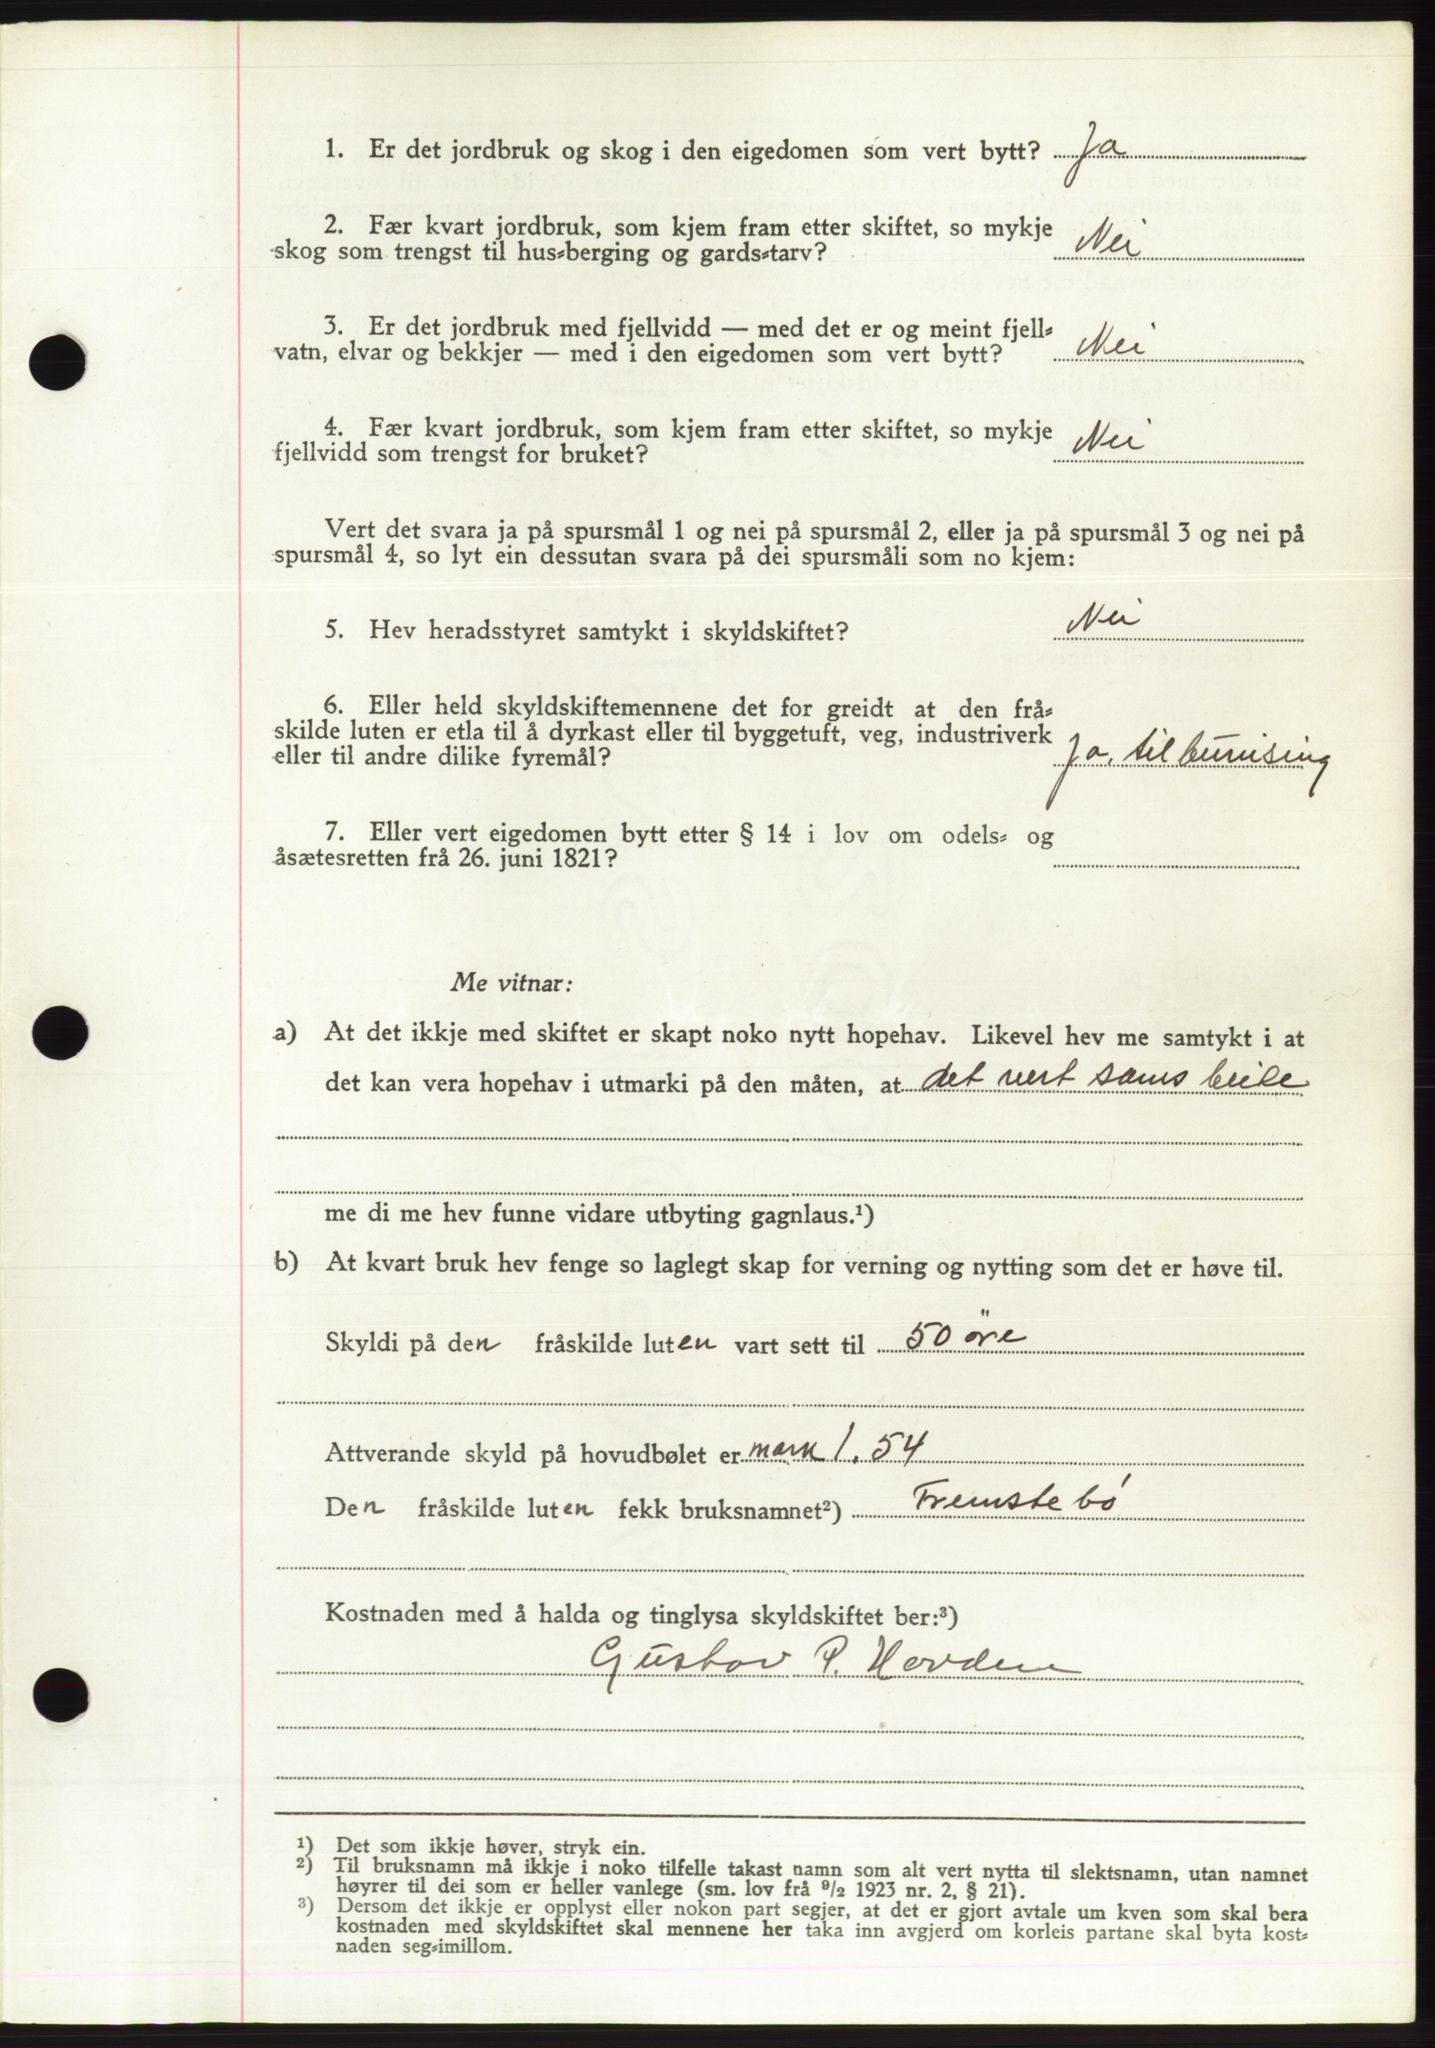 1. Er det jordbruk og skog i den eigedomen som vert bytt? Ja
2. Fær kvart jordbruk, som kjem fram etter skiftet, so mykje
skog som trengst til hus-berging og gards-tarv? Nei
3. Er det jordbruk med fjellvidd — med det er og meint fjell-
vatn, elvar og bekkjer — med i den eigedomen som vert bytt? Nei
4. Fær kvart jordbruk, som kjem fram etter skiftet, so mykje
fjellvidd som trengst for bruket? Nei
Vert det svara ja på spursmål 1 og nei på spursmål 2, eller ja på spursmål 3 og nei på
spursmål 4, so lyt ein dessutan svara på dei spursmåli som no kjem:
5. Hev heradsstyret samtykt i skyldskiftet? Nei
6. Eller held skyldskiftemennene det for greidt at den frå-
skilde luten er etla til å dyrkast eller til byggetuft, veg, industriverk
eller til andre dilike fyremål? Ja, til bureising
7. Eller vert eigedomen bytt etter § 14 i lov om odels- og
åsætesretten frå 26. juni 1821?
Me vitnar:
a) At det ikkje med skiftet er skapt noko nytt hopehav. Likevel hev me samtykt i at
det kan vera hopehav i utmarki på den måten, at det vert sams beite
me di me hev funne vidare utbyting gagnlaus.¹)
b) At kvart bruk hev fenge so laglegt skap for verning og nytting som det er høve til.
Skyldi på den fråskilde luten vart sett til 50 øre
Attverande skyld på hovudbølet er mark 1.54
Den fråskilde luten fekk bruksnamnet²) Fremstebø
Kostnaden med å halda og tinglysa skyldskiftet ber:³)
Gustav P. Hovden
¹) Det som ikkje høver, stryk ein.
²) Til bruksnamn må ikkje i noko tilfelle takast namn som alt vert nytta til slektsnamn, utan namnet
høyrer til dei som er heller vanlege (sm. lov frå ⁹/₂ 1923 nr. 2, § 21).
³) Dersom det ikkje er opplyst eller nokon part segjer, at det er gjort avtale um kven som skal bera
kostnaden med skyldskiftet skal mennene her taka inn avgjerd om korleis partane skal byta kost-
naden seg-imillom.